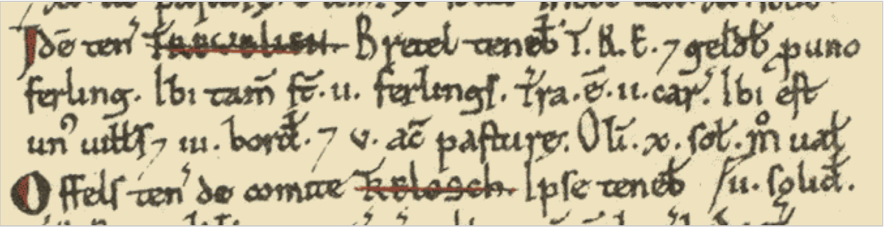 Idē ten' TREUELIEN. Bretel teneb̄ T.R.E. 7 geldb̄ p uno
ferling. Ibi tam̄ st̄ .ii. ferlings. Tra .ē. ii. car̄. Ibi est
un' uill̄s 7 iii. bord̄. 7 v. ac̄ pasturę. Oli.̄ x. sol̄. m̊ ual̄
Offels ten' de comite TRELOSCH. Ipse teneb̄ / ii. solid̄.